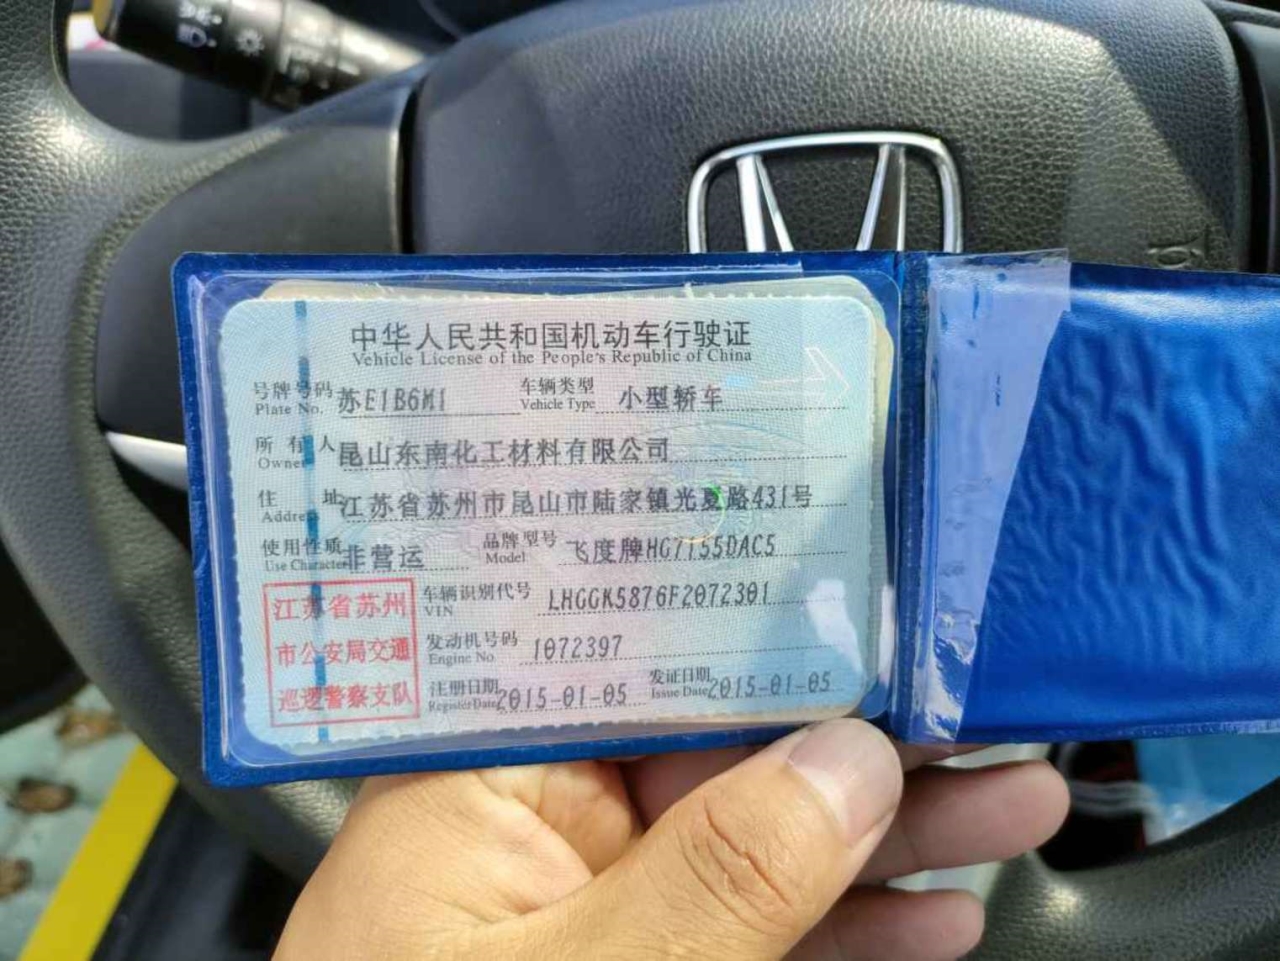 中华人民共和国机动车行驶证
Vehicle License of the People's Republic of China
号牌号码 苏E1B6M1 车辆类型 小型轿车
Plate No. Vehicle Type
所有人 昆山东南化工材料有限公司
Owner
住址 江苏省苏州市昆山市陆家镇光夏路431号
Address
使用性质 非营运 品牌型号 飞度牌HG7155DAC5
Use Character Model
江苏省苏州 车辆识别代号 LHGGK5876F2072301
VIN
市公安局交通 发动机号码 1072397
Engine No.
巡逻警察支队 注册日期 2015-01-05 发证日期 2015-01-05
Register Date Issue Date